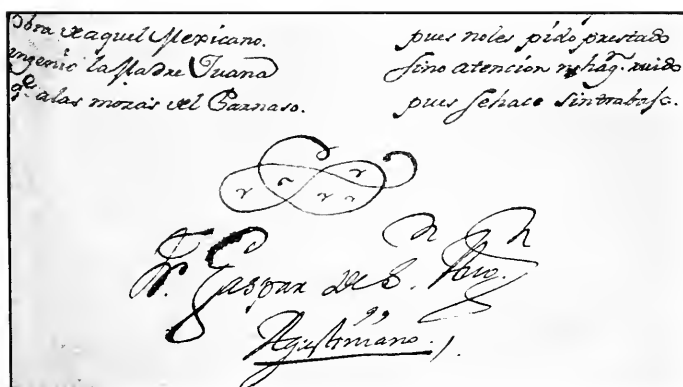 obra de aquel Mexicano.
ingenio la Madre Juana
q.e a las mozas del Parnaso.
pues no les pido prestado
sino atencion no hag.n ruido
pues se hace sin trabajo.
Fr. Gaspar de S.n Ag.n
Agustiniano.